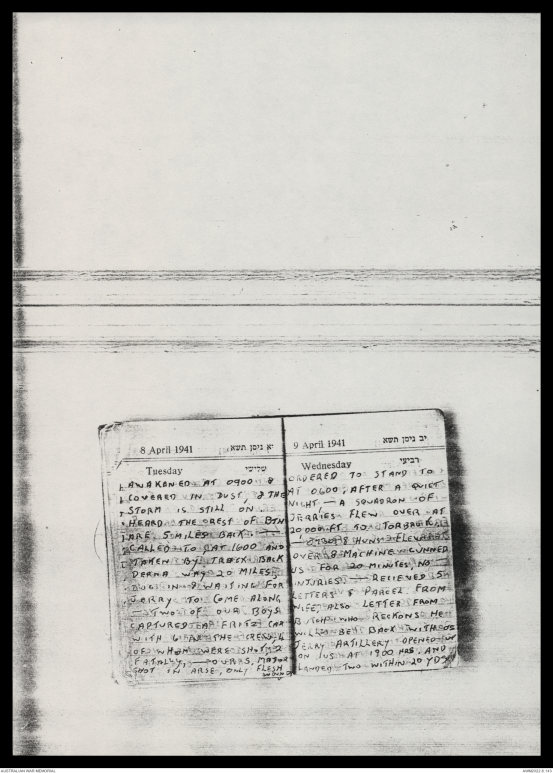 8 April 1941
יא ניסן תשא
Tuesday
שלישי
AWAKENED AT 0900 &
COVERED IN DUST, & THE
STORM IS STILL ON
HEARD THE REST OF BTN
ARE 5 MILES BACK.
CALLED TO AT 1600 AND
TAKEN BY TRUCK BACK
DERNA WAY 20 MILES,
DUG IN & WAITING FOR
JERRY TO COME ALONG
— TWO OF OUR BOYS
CAPTURED A FRITZ CAR
WITH 6 THE CREW,
OF WHOM WERE SHOT, 2
FATALLY, — OURS, MAJOR
SHOT IN ARSE, ONLY FLESH
WOUND
9 April 1941
יב ניסן תשא
Wednesday
רביעי
ORDERED TO STAND TO
AT 0600, AFTER A QUIET
NIGHT — A SQUADRON OF
JERRIES FLEW OVER AT
20,000 FT TO TOBROUK
— 8 HUNS FLEW
OVER & MACHINE GUNNED
US FOR 20 MINUTES, NO
INJURIES — RECIEVED 5
LETTERS & PARCEL FROM
WIFE, ALSO LETTER FROM
WHO RECKONS HE
WILL BE BACK WITH US
JERRY ARTILLERY OPENED UP
ON US AT 1900 HRS, AND
LANDED TWO WITHIN 20 YDS
AUSTRALIAN WAR MEMORIAL